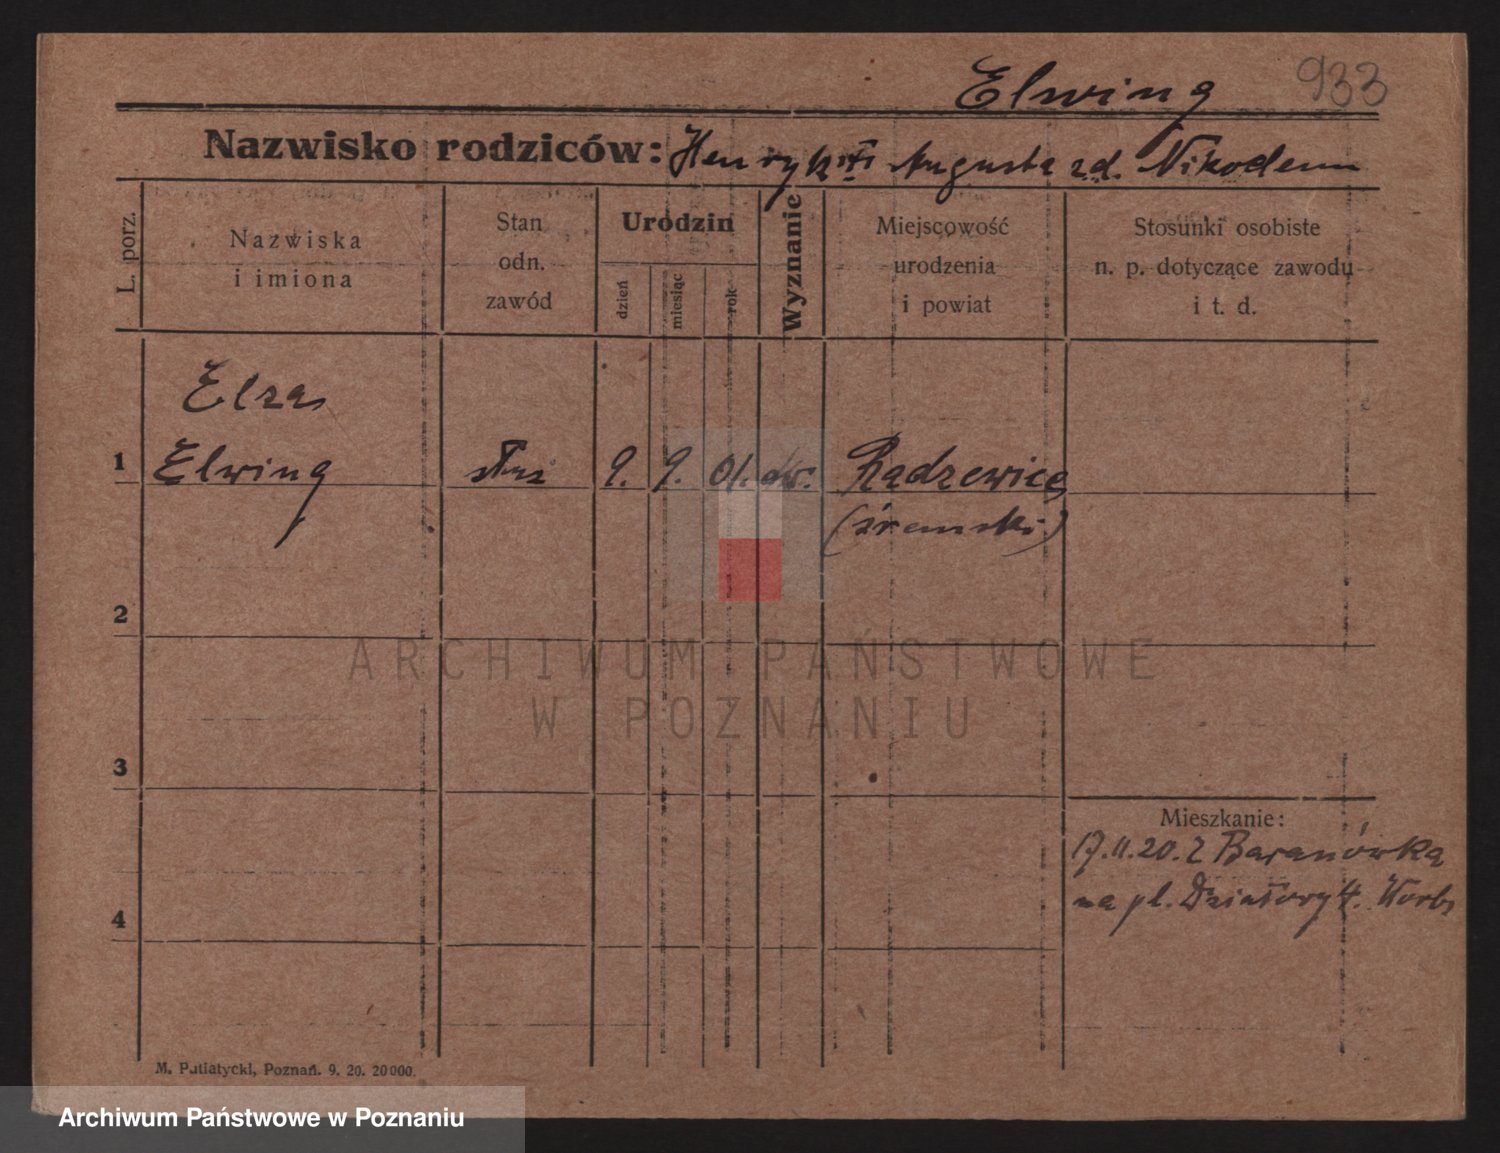 Elwing 933
Nazwisko rodziców: Henryk Augusta zd. Nikodem
L. porz.
Nazwiska
i imiona
Stan
odn.
zawód
Urodzin
dzień
miesiąc
rok
Wyznanie
Miejscowość
urodzenia
i powiat
Stosunki osobiste
n. p. dotyczące zawodu
i t. d.
Elza
1 Elwing służ 9. 9. 01. ew. Radzewice
(śremski)
2
3
4
Mieszkanie:
17.11.20. z Baranówka
na pl. Działowy 4.
M. Putiatycki, Poznań. 9. 20. 20000.
ARCHIWUM PAŃSTWOWE
W POZNANIU
Archiwum Państwowe w Poznaniu